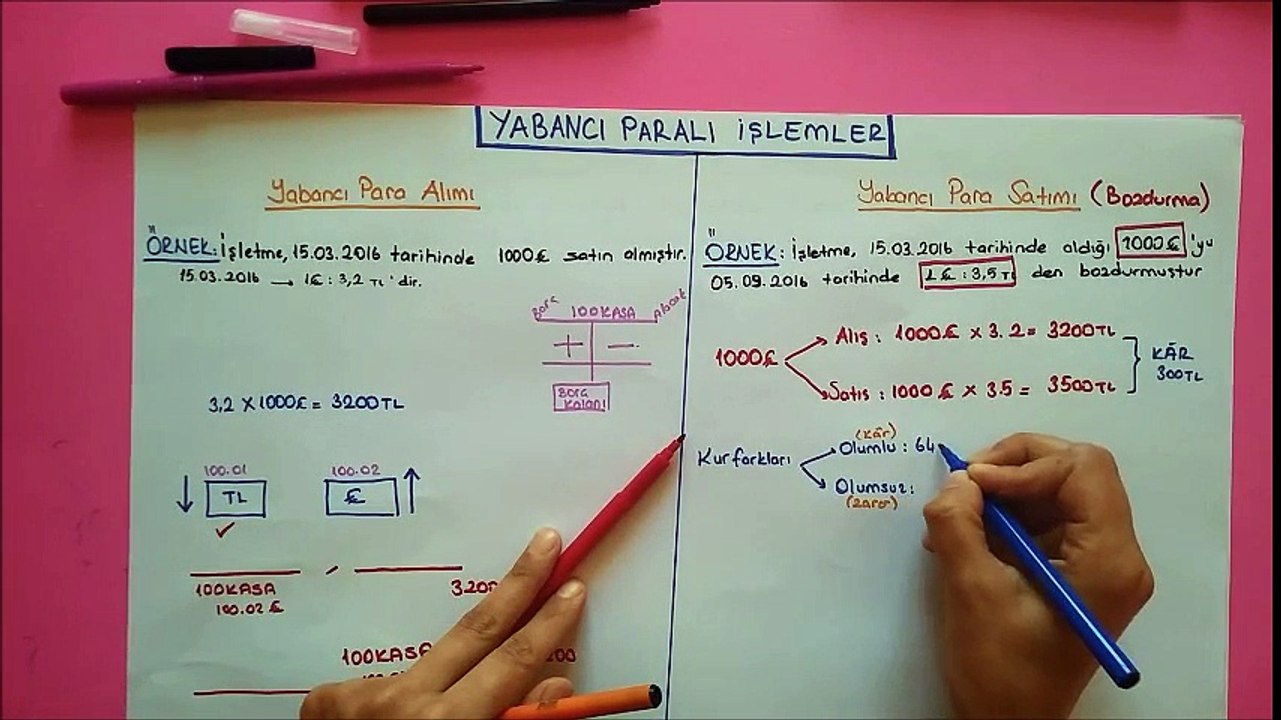 YABANCI PARALI İŞLEMLER
Yabancı Para Alımı
ÖRNEK: İşletme, 15.03.2016 tarihinde 1000€ satın almıştır.
15.03.2016 → 1€ : 3,2 TL' dir.
Borç 100KASA Alacak
+ -
Borç
Kalanı
3,2 X 1000€ = 3200TL
100.01 100.02
↓ TL € ↑
✓
/
100KASA 3.200
100.02 €
100KASA
Yabancı Para Satımı (Bozdurma)
ÖRNEK: İşletme, 15.03.2016 tarihinde aldığı 1000€'yu
05.09.2016 tarihinde 1€ : 3,5 TL den bozdurmuştur
1000€
Alış : 1000€ x 3.2 = 3200TL
Satış : 1000€ x 3.5 = 3500TL
KÂR
300TL
Kur farkları
(kâr)
Olumlu : 64
Olumsuz :
(zarar)